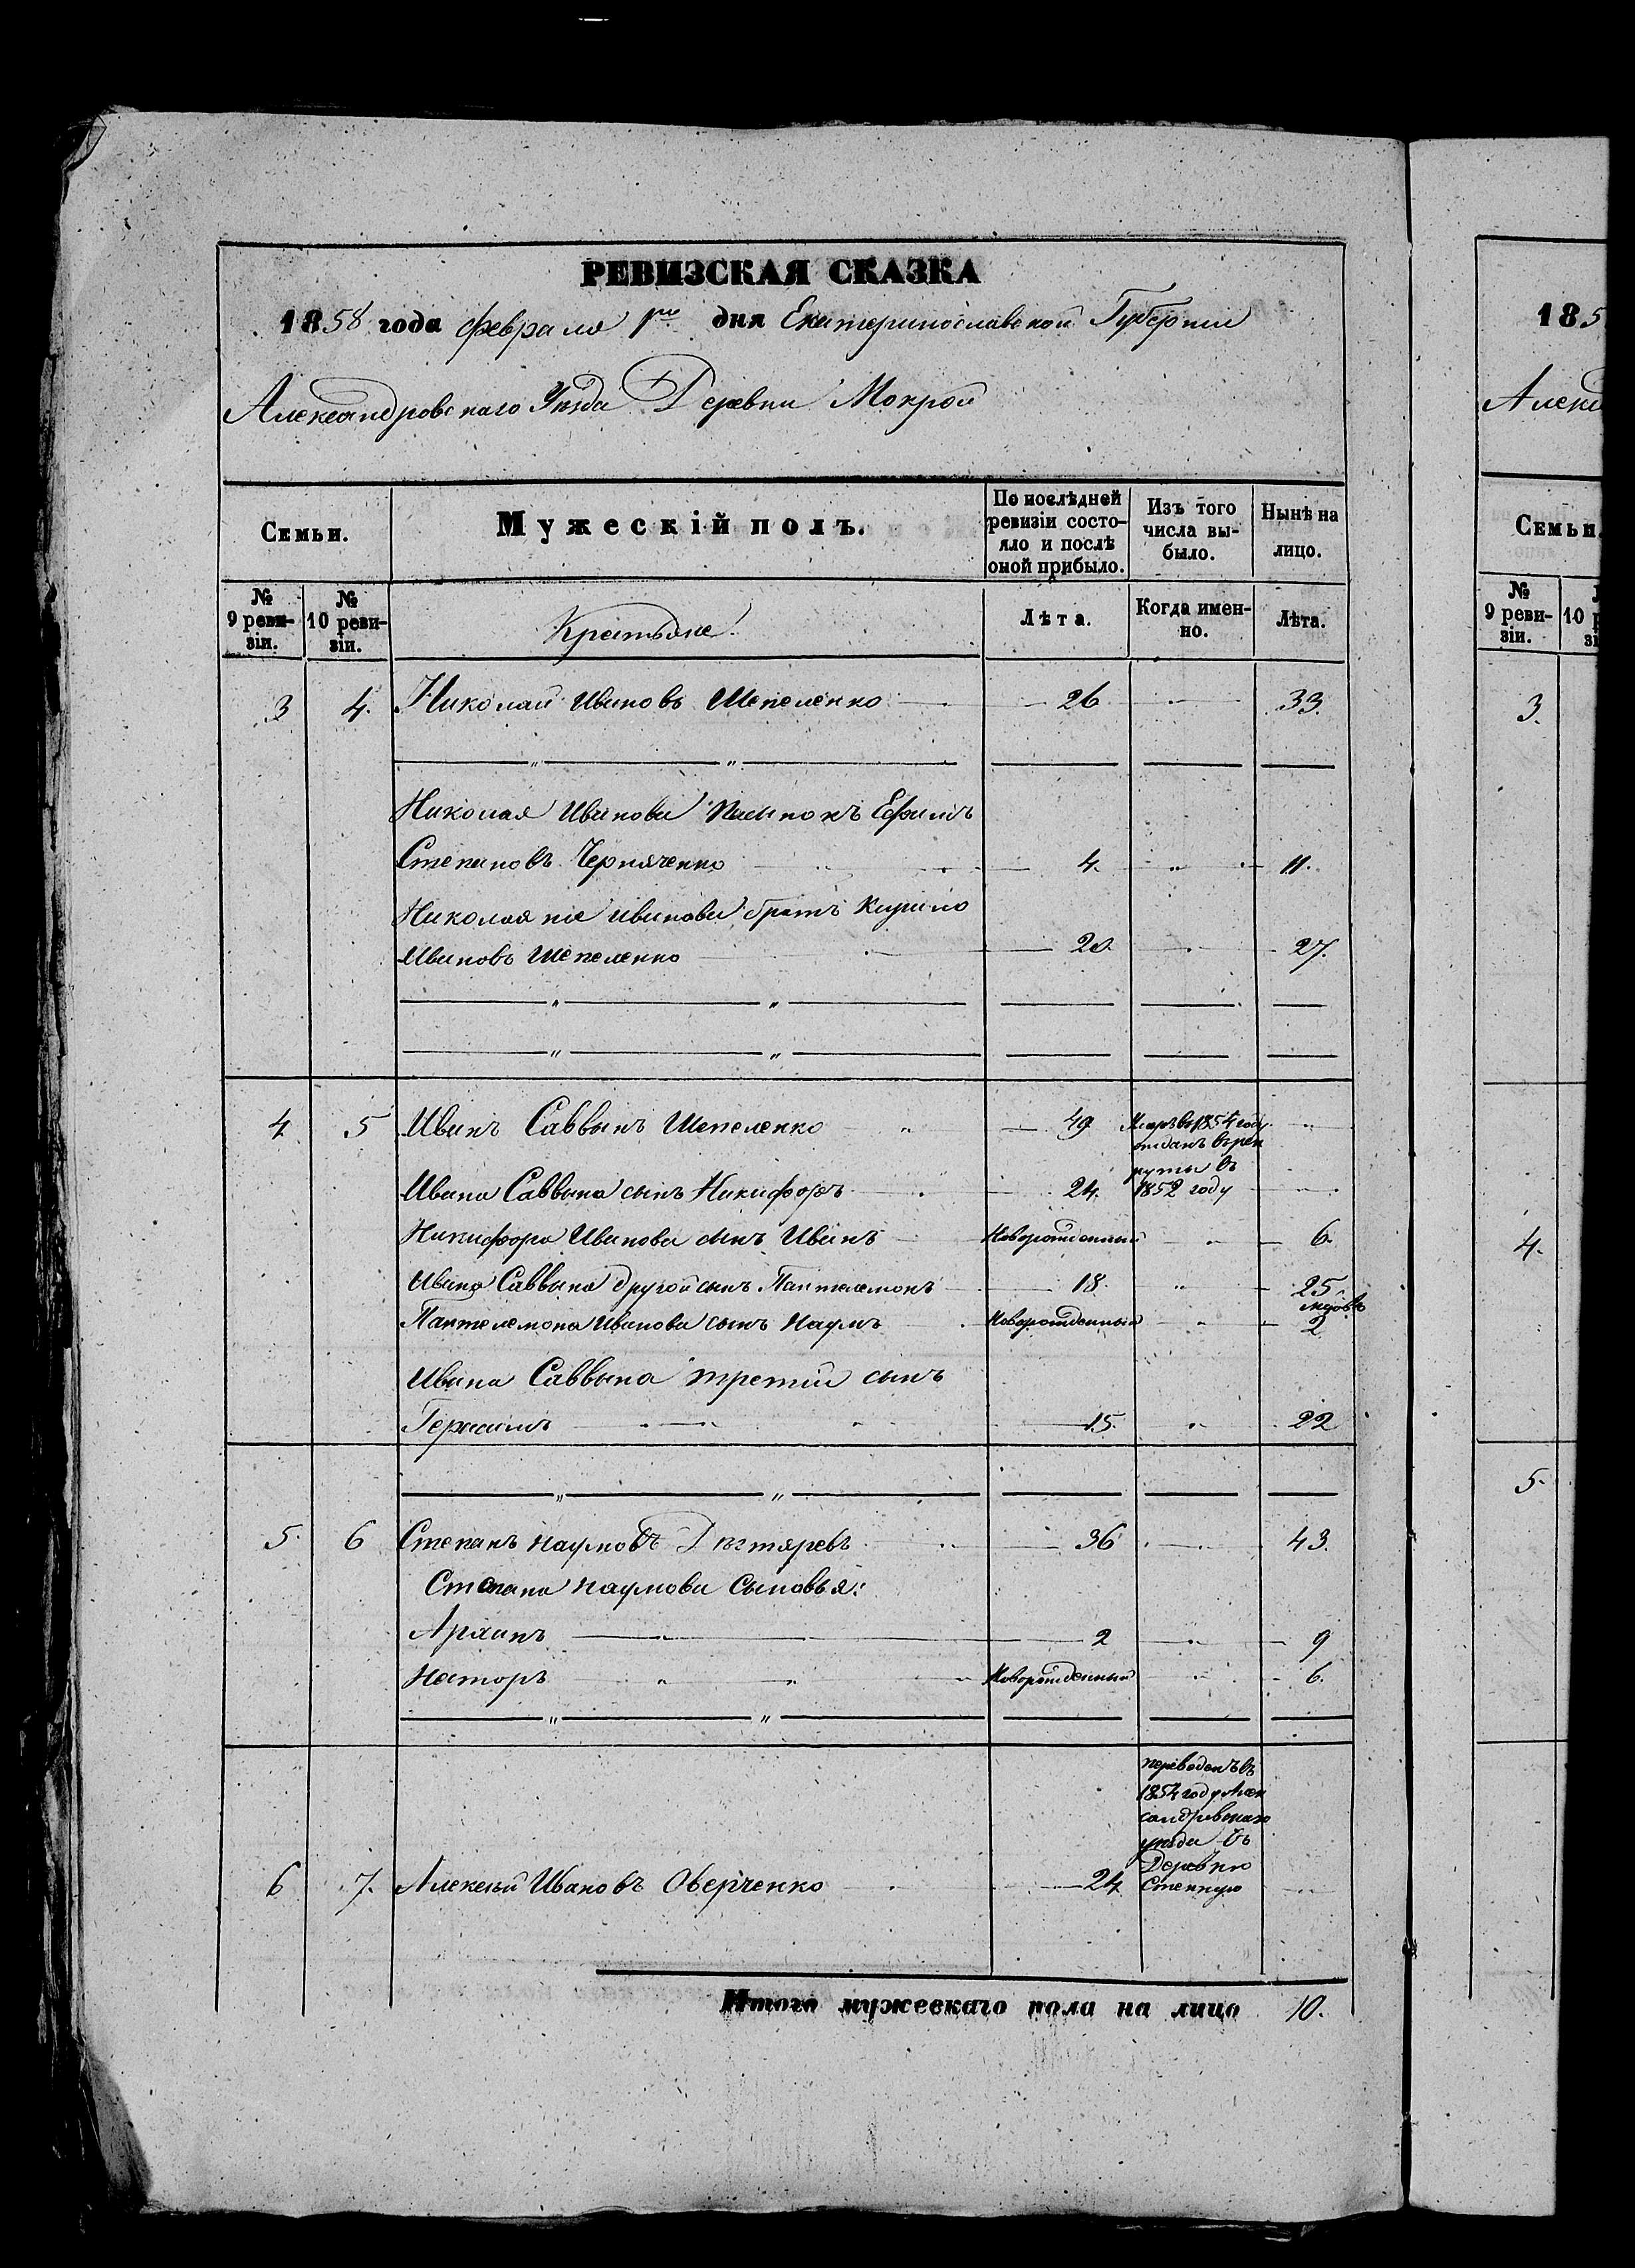 РЕВИЗСКАЯ СКАЗКА
1858 года февраля 1го дня Екатеринославской Губернии
Александровскаго Уѣзда Деревни Мокрой
Семьи.
Мужескій полъ.
По послѣдней ревизіи состояло и послѣ оной прибыло.
Изъ того числа выбыло.
Нынѣ на лицо.
№ 9 ревизіи.
№ 10 ревизіи.
Крестьяне.
Лѣта.
Когда именно.
Лѣта.
3 4. Николай Ивановъ Шепеленко 26 33.
Николая Иванова пасынокъ Ефимъ
Степановъ Черняченко 4. 11.
Николая же Иванова братъ Кирило
Ивановъ Шепеленко 20. 27.
4 5 Иванъ Саввинъ Шепеленко 49 Умеръ въ 1854 году
отданъ въ рек
руты въ
Ивана Саввина сынъ Никифоръ 24. 1852 году
Никифора Иванова сынъ Иванъ Новорожденный 6.
Ивана Саввина другой сынъ Пантелемонъ 18. 25
Пантелемона Иванова сынъ Наумъ Новорожденный 2
Ивана Саввина третій сынъ
Герасимъ 15. 22
5. 6 Степанъ Наумовъ Дегтяревъ 36 43.
Степана Наумова сыновья:
2 9
Несторъ Новорожденный 6.
переведенъ въ
1854 году Алек
сандровскаго
уѣзда въ
Деревню
6 7. Алексѣй Ивановъ Оверченко 24 Степную
Итого мужескаго пола на лицо 10.
185
Алекса
Семьи.
№ 9 ревизіи.
10
3.
4.
5.